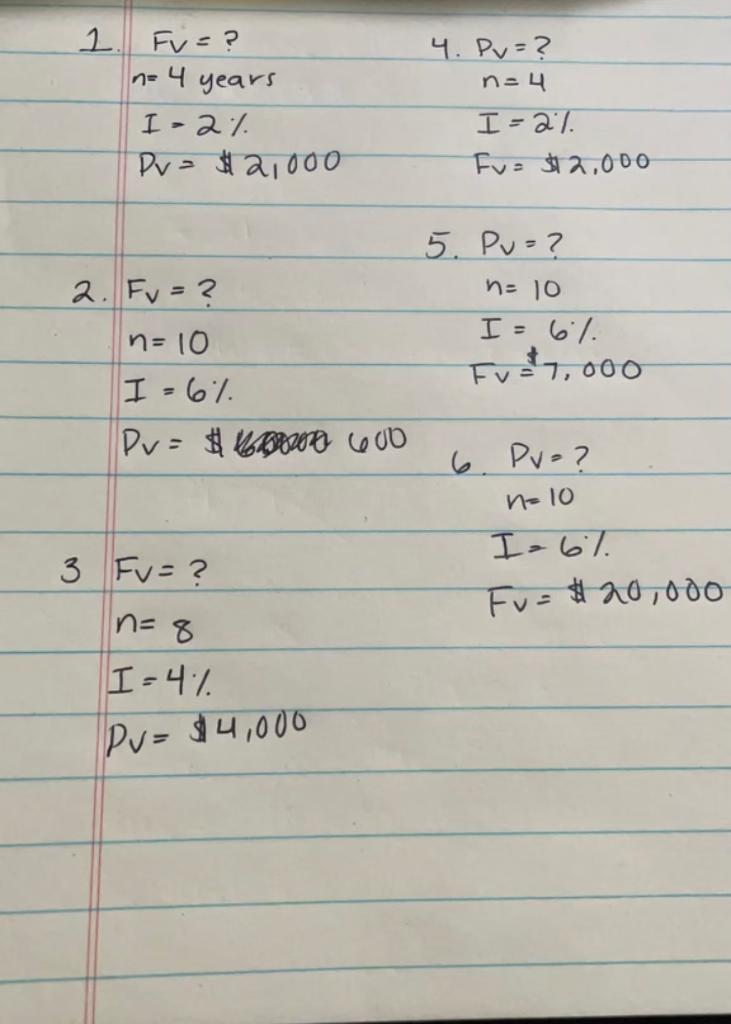 1. Fv = ?
n= 4 years
I = 2%
Pv = $2,000
2. Fv = ?
n= 10
I = 6%
Pv = $ 600
3 Fv= ?
n= 8
I = 4%
Pv= $4,000
4. Pv = ?
n= 4
I = 2%
Fv = $2,000
5. Pv = ?
n= 10
I = 6%
Fv = $7,000
6. Pv = ?
n= 10
I = 6%
Fv = $20,000